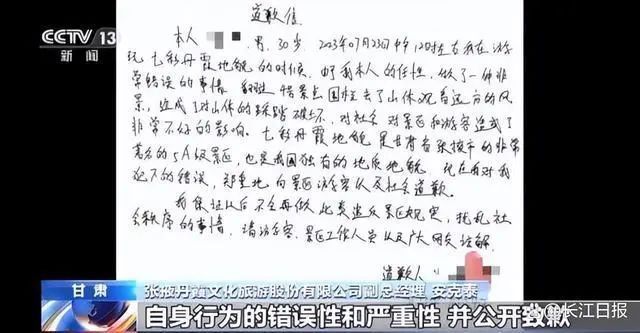 CCTV 13
新闻
道歉信
本人 男,30岁 2023年07月23日中午12时左右我在游
玩七彩丹霞地貌的时候,由于我本人的任性,做了一件非
常错误的事情 翻越 景点围栏去了山体观看远方的风
景,造成了对山体的踩踏破坏,对社会 对景区和游客造成了
非常不好的影响。七彩丹霞地貌 是甘肃省张掖市的非常
著名的5A级景区,也是我国独有的地质地貌 现在我对我
犯下的错误,郑重地向景区游客以及社会道歉。
我保证以后不会再做此类违反景区规定,扰乱社
会秩序的事情,请游客 景区工作人员以及广大网友谅解
道歉人
甘肃
张掖丹霞文化旅游股份有限公司副总经理 安克泰
自身行为的错误性和严重性 并公开致歉
@长江日报